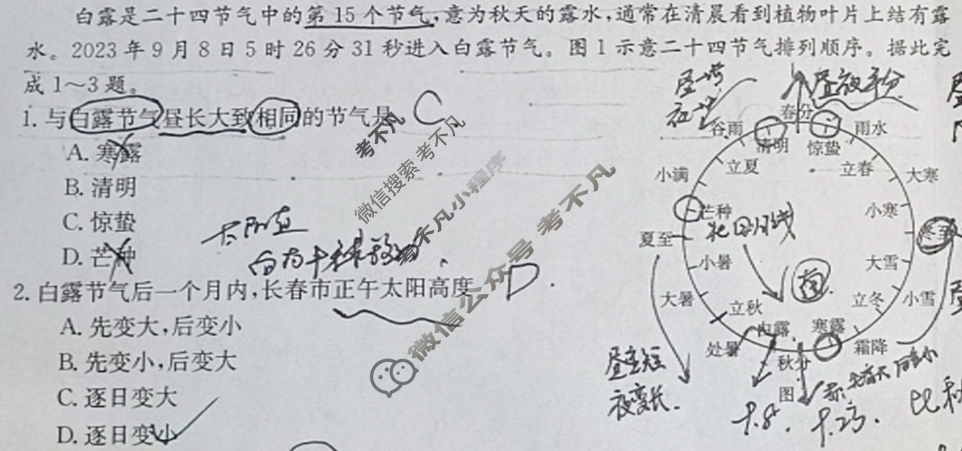 白露是二十四节气中的第15个节气,意为秋天的露水,通常在清晨看到植物叶片上结有露
水。2023年9月8日5时26分31秒进入白露节气。图1示意二十四节气排列顺序。据此完
成1~3题。
1. 与白露节气昼长大致相同的节气是 C
A. 寒露
B. 清明
C. 惊蛰
D. 芒种
2. 白露节气后一个月内,长春市正午太阳高度 D.
A. 先变大,后变小
B. 先变小,后变大
C. 逐日变大
D. 逐日变小
春分
谷雨
雨水
清明
惊蛰
立夏
立春
小满
大寒
芒种
小寒
夏至
冬至
小暑
大雪
大暑
小雪
立秋
立冬
白露
寒露
处暑
霜降
秋分
图
北回归线
南
昼变短
夜变长.
9.8.
9.23.
太阳直
考不凡
微信搜索 考不凡
考不凡小程序
微信公众号 考不凡